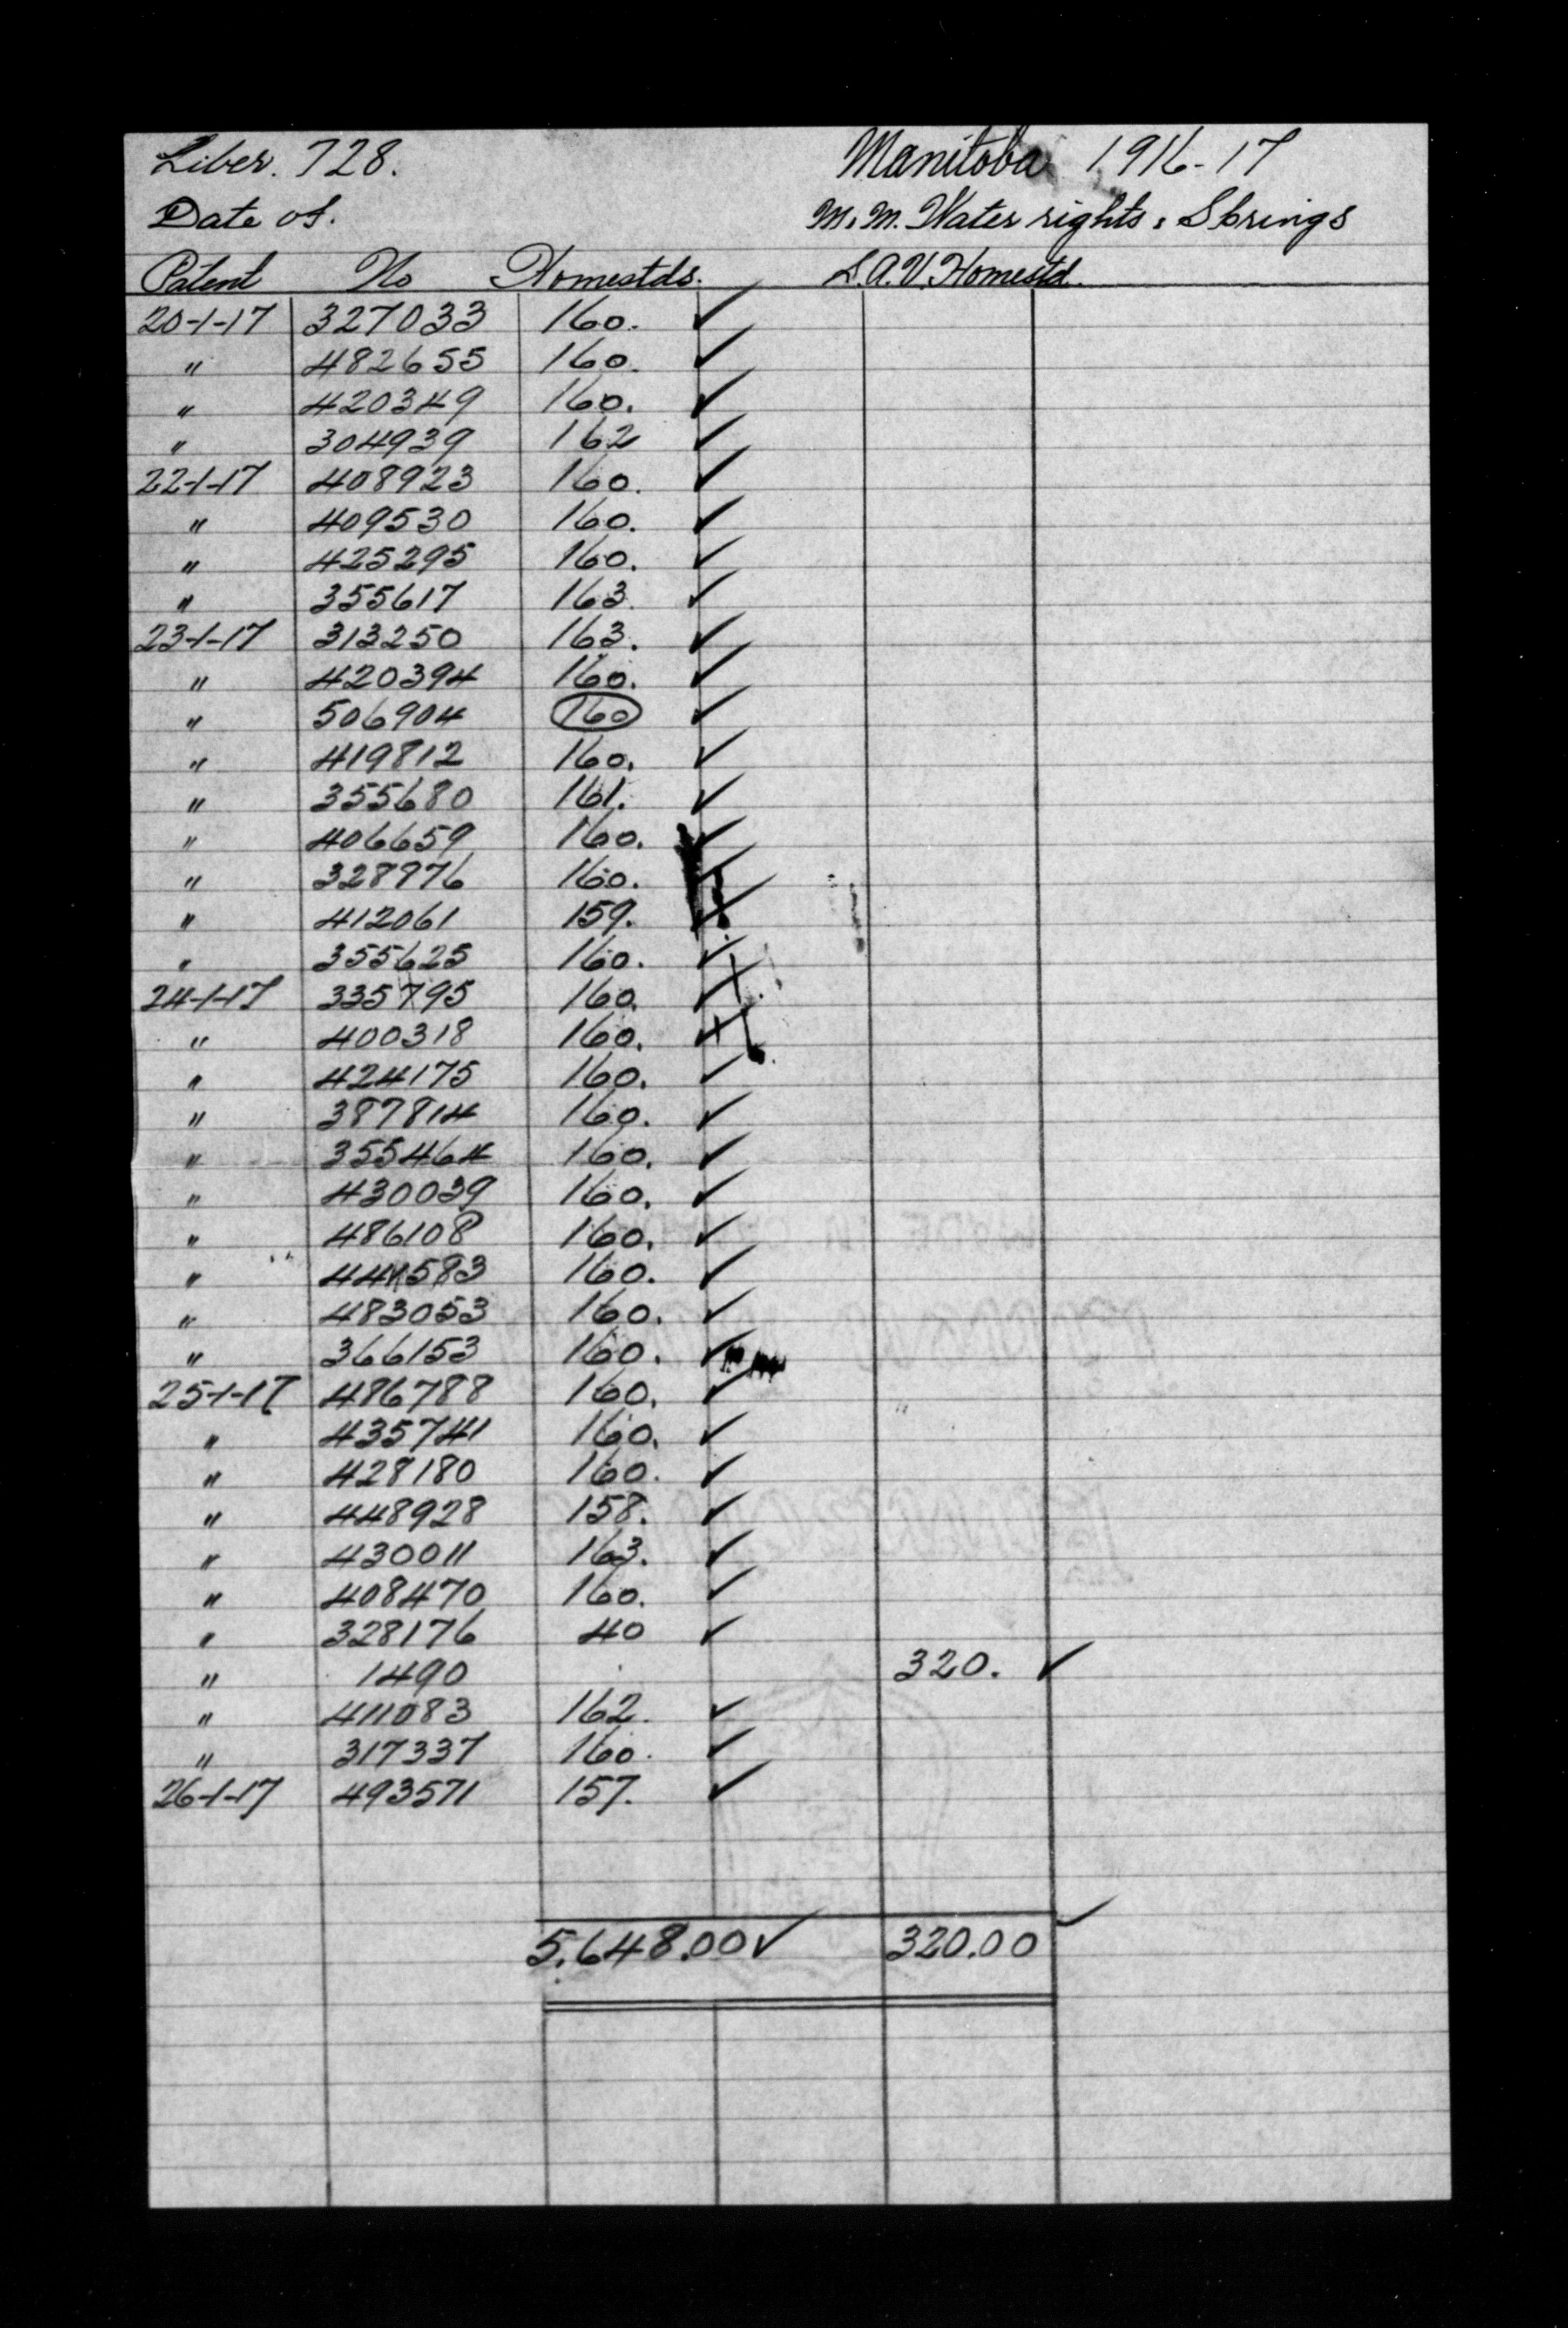 Liber. 728. Manitoba 1916-17
Date of. M. M. Water rights, Springs
Patent No Homestds. S.A.V. Homestd.
20-1-17 327033 160. ✓
" 482655 160. ✓
" 420349 160. ✓
" 304939 162 ✓
22-1-17 408923 160. ✓
" 409530 160. ✓
" 425295 160. ✓
" 355617 163. ✓
23-1-17 313250 163. ✓
" 420394 160. ✓
" 506904 160 ✓
" 419812 160. ✓
" 355680 161. ✓
" 406659 160. ✓
" 328976 160. ✓
" 412061 159. ✓
" 355625 160. ✓
24-1-17 335795 160. ✓
" 400318 160. ✓
" 424175 160. ✓
" 387814 160. ✓
" 355464 160. ✓
" 430039 160. ✓
" 486108 160. ✓
" 160. ✓
" 483053 160. ✓
" 366153 160. ✓
25-1-17 486788 160. ✓
" 435741 160. ✓
" 428180 160. ✓
" 448928 158. ✓
" 430011 163. ✓
" 408470 160. ✓
" 328176 40 ✓
" 1490 320. ✓
" 411083 162. ✓
" 317337 160. ✓
26-1-17 493571 157. ✓
5,648.00 ✓ 320.00 ✓